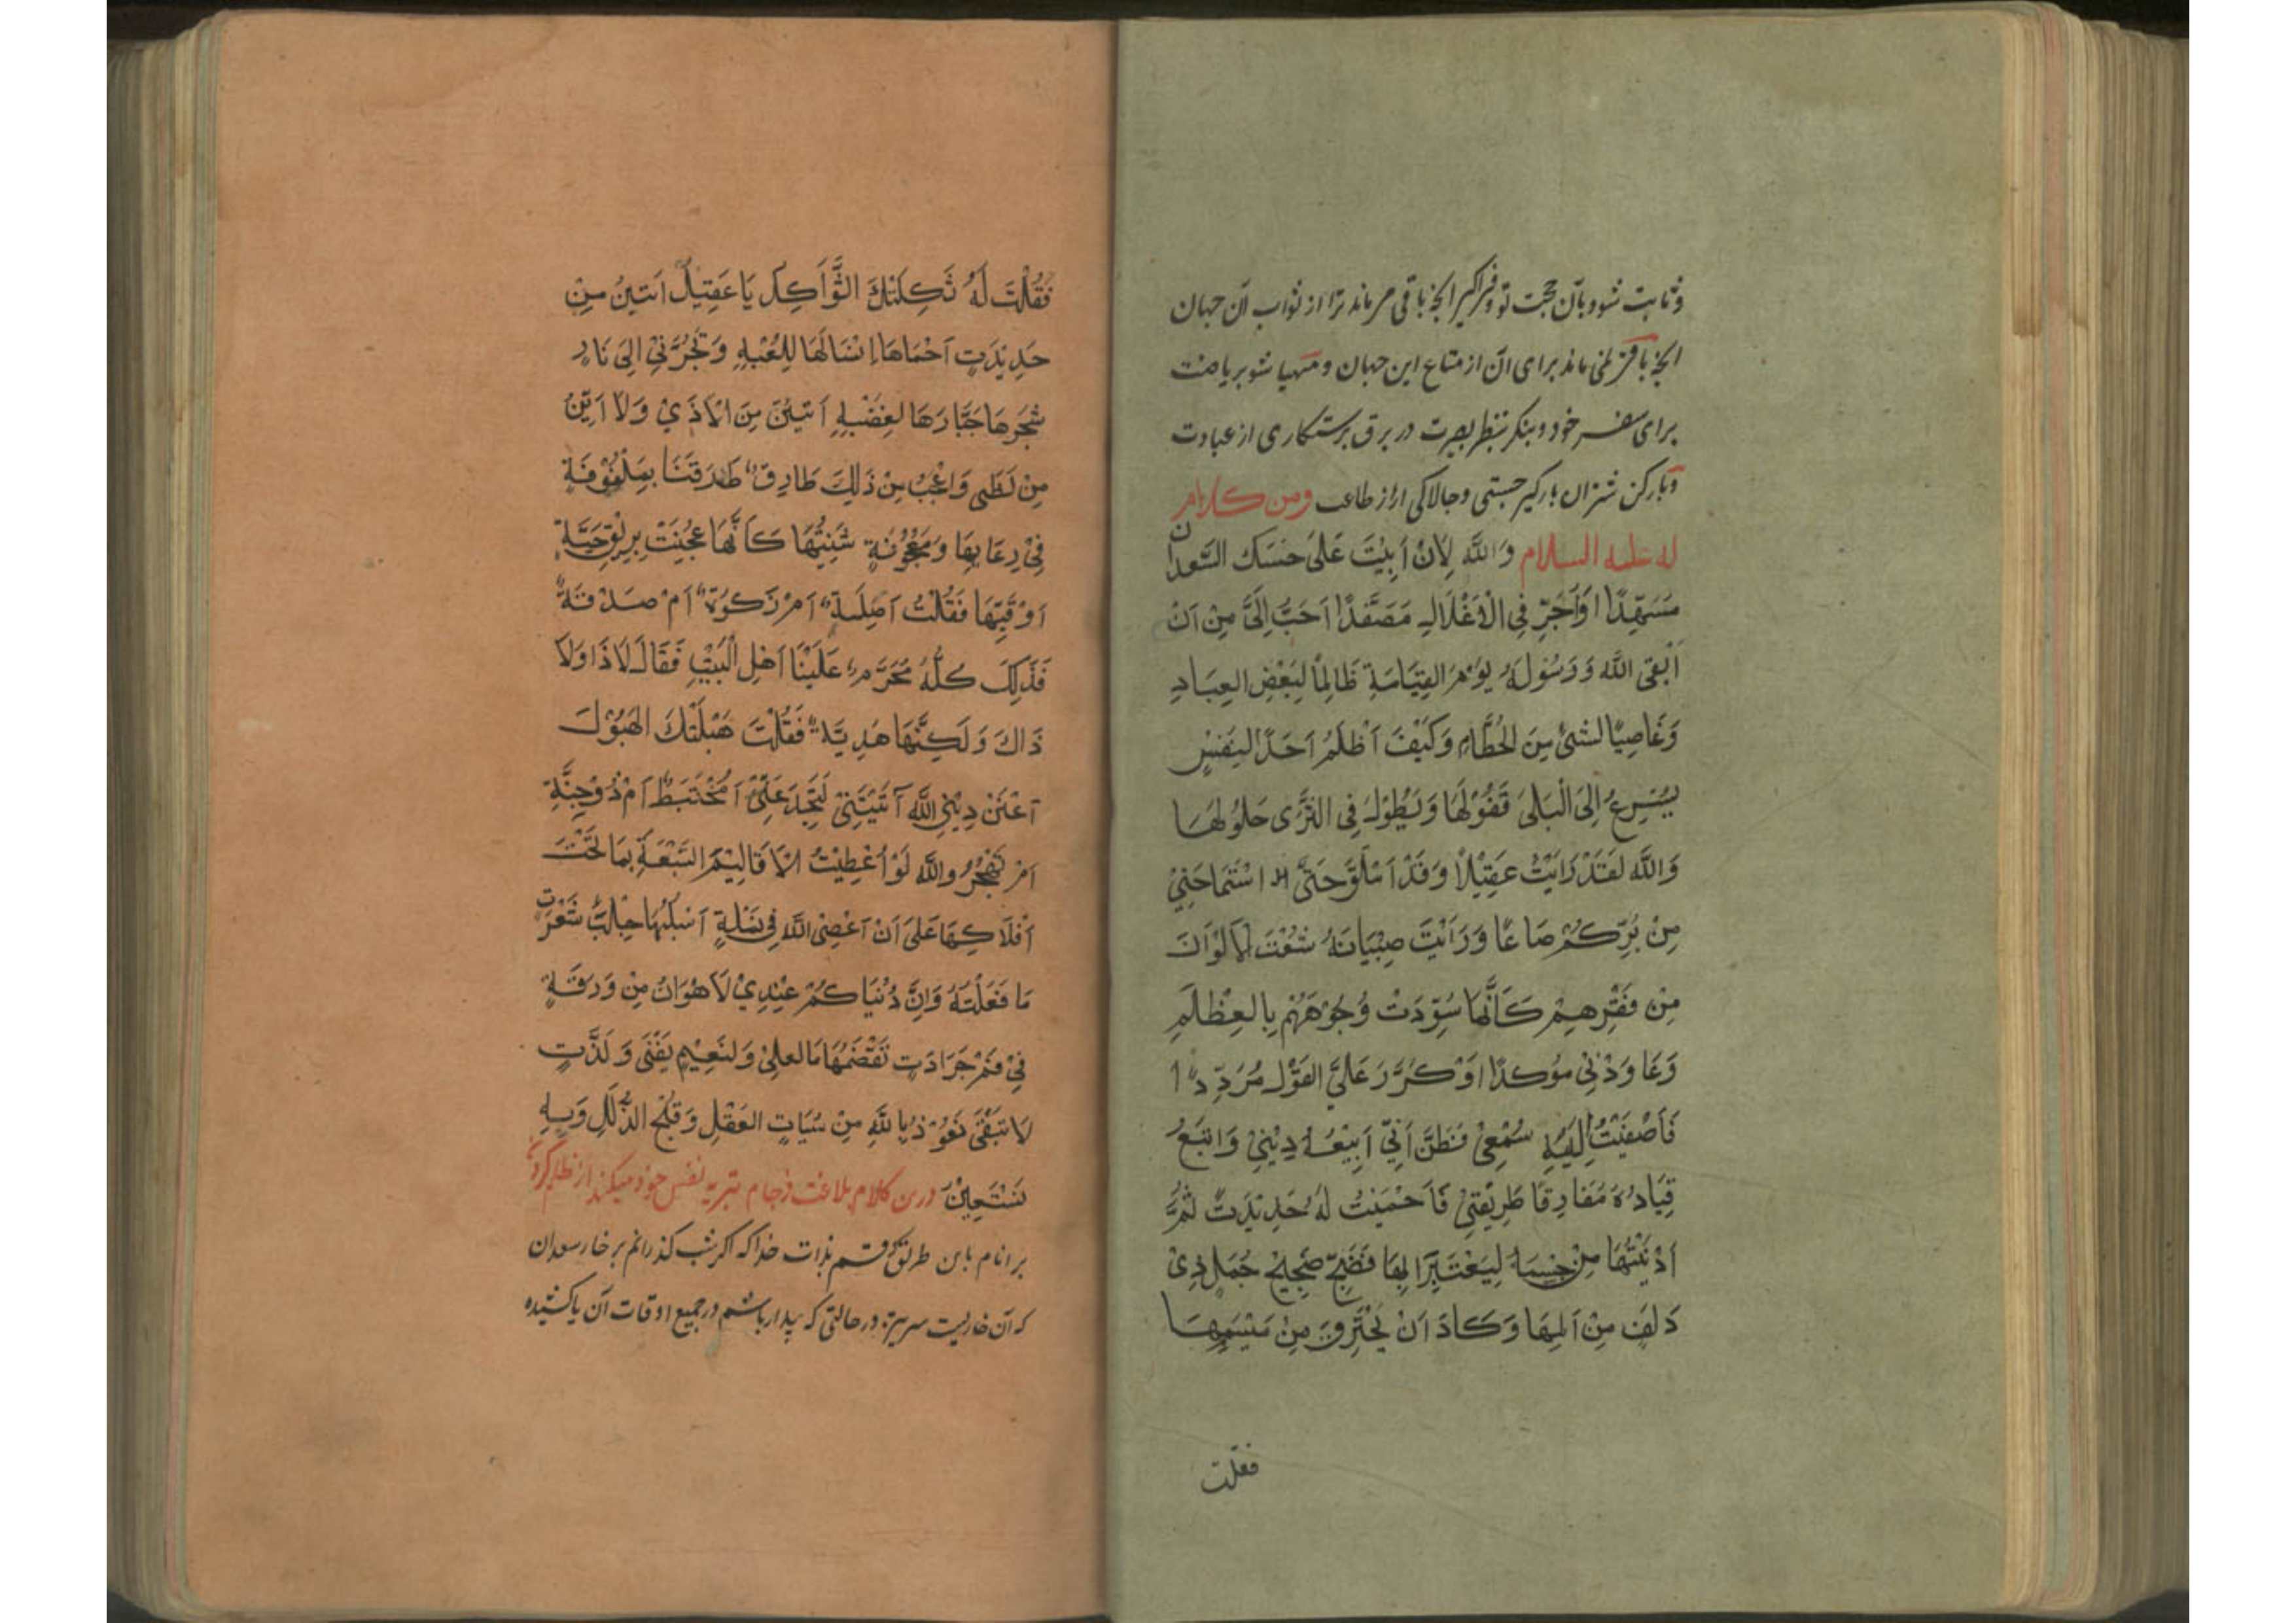 وثابت شود بآن حجت تو و فراگیر انچه باقی مر ماند ترا از ثواب آن جهان
انچه باقی نمی ماند برای آن از متاع این جهان و مهیا شو بریاضت
برای سفر خود و بنکر بنظر بصیرت در برق رستکاری از عبادت
وبارکن شتران بارکیر چستی وچالاکی از طاعت ومن کلام
له علیه السلام وَاللَّهِ لِاَنْ اَبِیْتَ عَلیٰ حَسَكِ السَّعدان
مُسَهَّدًا اَوْاُجَرَّ فِی الْاَغْلَالِ مُصَفَّدًا اَحَبُّ اِلَیَّ مِنْ اَنْ
اَلْقی اللّٰهَ وَرَسُولَهُ یَوْمَ القِیَامَةِ ظَالِمًا لِبَعْضِ العِبَادِ
وَغَاصِبًا لشئ مِنَ الحُطَامِ وَکَیْفَ اَظْلِمُ اَحَدًا لِنَفْسٍ
یُسْرِعُ اِلَی الْبَلیٰ قُفُوْلُهَا وَیَطُوْلُ فِی الثَّرٰی حُلُولُهَا
وَاللّٰهِ لَقَدْ رَاَیْتُ عَقِیْلًا وَقَدْ اَمْلَقَ حَتَّی اسْتَمَاحَنِیْ
مِنْ بُرِّکُمْ صَاعًا وَرَاَیْتُ صِبْیَانَهُ شُعْثَ الْاَلْوَانَ
مِنْ فَقْرِهِمْ کَاَنَّهَا سُوِّدَتْ وُجُوْهُهُمْ بِالعِظْلَمِ
وَعَاوَدَنِیْ مُؤکِدًا وَکَرَّرَ عَلَیَّ القَوْلَ مُرَدِّدًا
فَاَصْغَیْتُ اِلَیْهِ سَمْعِیْ فَظَنَّ اَنِّیْ اَبِیْعُهُ دِیْنِیْ وَاتَّبَعُ
قِیَادَهُ مُفَارِقًا طَرِیْقَتِیْ فَاَحْمَیْتُ لَهُ حَدِیْدَتً ثُمَّ
اَدْنَیْتُهَا مِنْ جِسْمِهِ لِیَعْتَبِرَ بِهَا فَضَجَّ ضَجِیْجَ جُمَلٍ ذِیْ
دَلَفٍ مِنْ اَلَمِهَا وَکَادَ اَنْ یَحْتَرِقَ مِنْ مَیْسَمِهَا
فقلت
فَقُلْتُ لَهُ ثَکِلَتْكَ الثَّوَاکِلُ یَا عَقِیْلُ اَتَئِنُّ مِنْ
حَدِیْدَتٍ اَحْمَاهَا اِنْسَانُهَا لِلُعْبِهِ وَتَجُرُّنِیْ اِلَی نَارٍ
سَجَرَهَا جَبَّارُهَا لِغَضَبِهِ اَتَئِنُّ مِنَ الْاَذَیْ وَلَا اَئِنُّ
مِنْ لَظٰی وَاَعْجَبُ مِنْ ذٰلِكَ طَارِقٌ طَرَقَنَا بِمَلْفُوْفَةٍ
فِیْ وِعَائِهَا وَمَعْجُوْنَةٍ شَنِئْتُهَا کَاَنَّهَا عُجِنَتْ بِرِیْقِ حَیَّةٍ
اَوْ قَیْئِهَا فَقُلْتُ اَصِلَةٌ اَمْ زَکوٰةٌ اَمْ صَدْقَةٌ
فَذٰلِكَ کُلُّهُ مُحَرَّمٌ عَلَیْنَا اَهْلَ الْبَیْتِ فَقَالَ لَا ذَا وَلَا
ذَاكَ وَلَکِنَّهَا هَدِیَّةٌ فَقُلْتُ هَبَلَتْكَ الهَبُوْلُ
اَعَنْ دِیْنِ اللّٰهِ اَتَیْتَنِیْ لِتَخْدَعَنِیْ اَمُخْتَبِطٌ اَمْ ذُوْجِنَّةٍ
اَمْ تَهْجُرُ وَاللّٰهِ لَوْ اُعْطِیْتُ الْاَقَالِیْمَ السَّبْعَةَ بِمَا تَحْتَ
اَفْلَاکِهَا عَلٰی اَنْ اَعْصِیَ اللّٰهَ فِیْ نَمْلَةٍ اَسْلُبُهَا جِلْبَ شَعْرَتٍ
مَا فَعَلْتُهُ وَاِنَّ دُنْیَاکُمْ عِنْدِیْ لَاَهْوَانُ مِنْ وَرَقَةٍ
فِیْ فَمِ جَرَادَتٍ تَقْضَمُهَا مَالعلِیْ وَلنَعِیْمٍ یَفْنٰی وَلَذَّتٍ
لَا تَبْقٰی نَعُوْذُ بِاللّٰهِ مِنْ سُبَاتِ العَقْلِ وَقُبْحِ الذَّلَلِ وَبِهِ
نَسْتَعِیْنُ درین کلام بلاغت فرجام تبریه نفس خود میکند از ظلم کردن
بر انام باین طریق که قسم بذات خدا که اکر شب کذرانم بر خار سعدان
که آن خاریست سرتیز در حالتی که بیدار باشم در جمیع اوقات آن یا کشیده